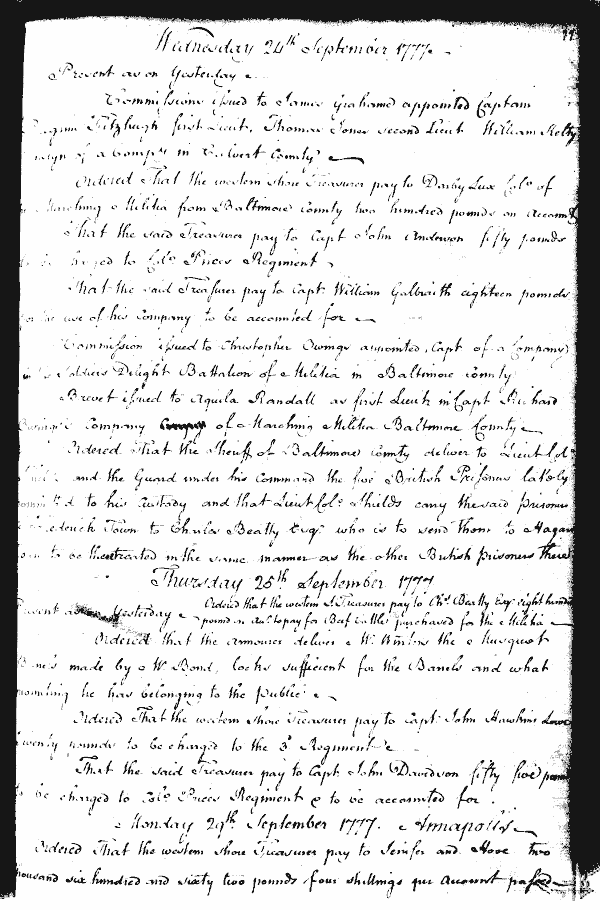 Wednesday 24th September 1777.
Present as on Yesterday
Commissions issued to James Grahame appointed Captain
Fitzhugh first Lieut. Thomas Jones second Lieut William Kelty
of a Compy in Calvert County
Ordered That the western shore Treasurer pay to Darby Lux Colo of
Marching Militia from Baltimore County two hundred pounds on Account
That the said Treasurer pay to Capt John Anderson fifty pounds
to Colo Prices Regiment
That the said Treasurer pay to Capt William Galbraith eighteen pounds
for the use of his Company to be accounted for
Commission issued to Christopher Owings appointed Capt of a Company
Soldiers Delight Battalion of Militia in Baltimore County
Brevet issued to Aquila Randall as first Lieut in Capt Richard
Company of Marching Militia Baltimore County
Ordered That the Sheriff of Baltimore County deliver to Lieut Colo
and the Guard under his Command the five British Prisoners lately
to his Custody and that Lieut Colo Shields carry the said prisoners
Frederick Town to Charles Beatty Esqr who is to send them to Hagars
to be treated in the same manner as the other British prisoners there
Thursday 25th September 1777
Ordered that the western S. Treasurer pay to Chs Beatty Esqr eight hundred
Present as on Yesterday
pounds on acct to pay for Beef Cattle purchased for the Militia
Ordered that the armourer deliver Mr Winters the Musquet
made by Mr Bond, locks sufficient for the Barrels and what
mounting he has belonging to the public
Ordered That the western shore Treasurer pay to Capt John Hawkins Lowe
twenty pounds to be charged to the 3d Regiment
That the said Treasurer pay to Capt John Davidson fifty five pounds
to be charged to Colo Prices Regiment & to be accounted for.
Monday 29th September 1777. Annapolis
Ordered That the western shore Treasurer pay to Jenifer and Hove two
thousand six hundred and sixty two pounds four shillings per Account passed